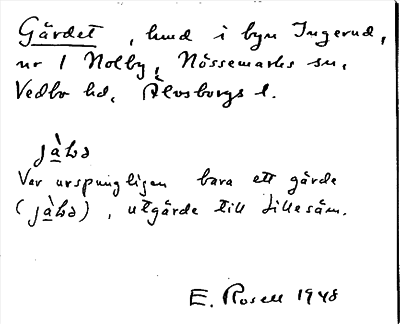 Gärdet, hmd i byn Ingerud,
nr 1 Nolby, Nössemarks sn,
Vedbo hd, Älvsborgs l.
Var ursprungligen bara ett gärde
utgärde till Lillesäm.
E. Rosell 1948